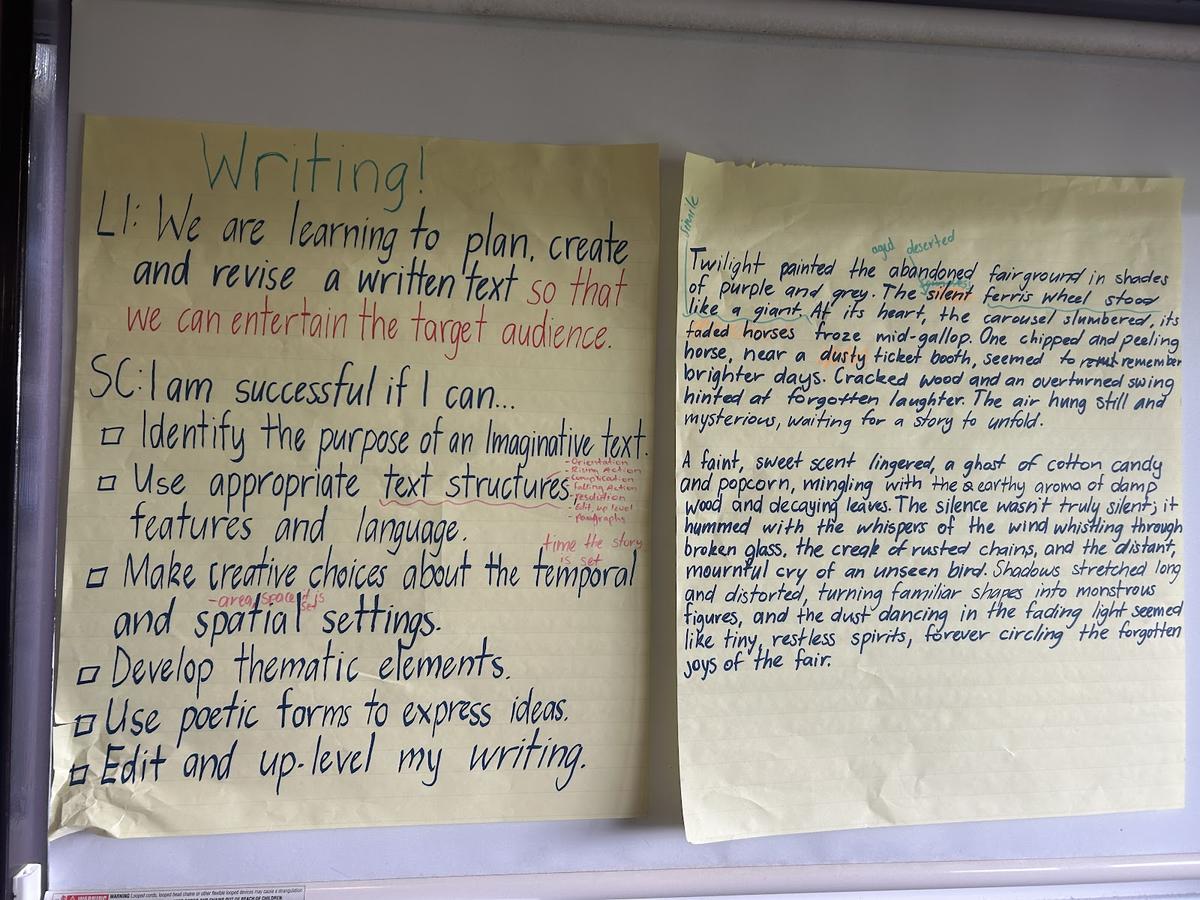 Writing!
LI: We are learning to plan, create
and revise a written text so that
we can entertain the target audience.
SC: I am successful if I can...
Identify the purpose of an Imaginative text.
Use appropriate text structures,
- Orientation
- Rising Action
- Complication
- Falling Action
- resolution
- Edit, up level
- paragraphs
features and language.
time the story
is set
Make creative choices about the temporal
- area, space it is
set
and spatial settings.
Develop thematic elements.
Use poetic forms to express ideas.
Edit and up-level my writing.
simile
aged deserted
Twilight painted the abandoned fairground in shades
of purple and grey. The silent ferris wheel stood
like a giant. At its heart, the carousel slumbered, its
faded horses froze mid-gallop. One chipped and peeling
horse, near a dusty ticket booth, seemed to remember
brighter days. Cracked wood and an overturned swing
hinted at forgotten laughter. The air hung still and
mysterious, waiting for a story to unfold.
A faint, sweet scent lingered, a ghost of cotton candy
and popcorn, mingling with the earthy aroma of damp
wood and decaying leaves. The silence wasn't truly silent; it
hummed with the whispers of the wind whistling through
broken glass, the creak of rusted chains, and the distant,
mournful cry of an unseen bird. Shadows stretched long
and distorted, turning familiar shapes into monstrous
figures, and the dust dancing in the fading light seemed
like tiny, restless spirits, forever circling the forgotten
joys of the fair.
WARNING Looped cords, looped head chains or other flexible looped devices may cause a strangulation